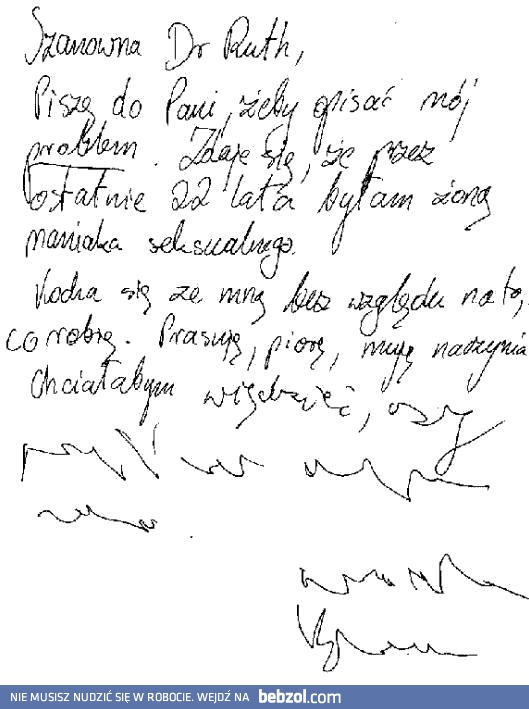 Szanowna Dr Ruth,
Piszę do Pani, żeby opisać mój
problem. Zdaje się, że przez
ostatnie 22 lata byłam żoną
maniaka seksualnego.
Kocha się ze mną bez względu na to,
co robię. Prasuję, piorę, myję naczynia
Chciałabym wiedzieć, czy
NIE MUSISZ NUDZIĆ SIĘ W ROBOCIE. WEJDŹ NA bebzol.com